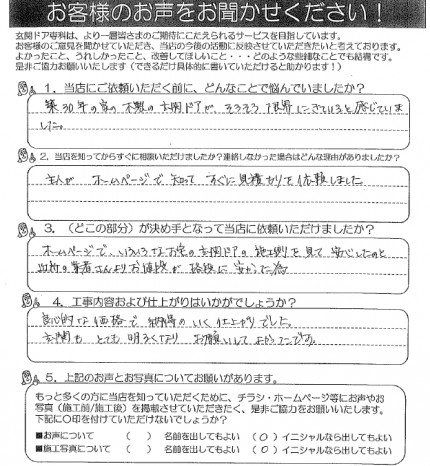 お客様のお声をお聞かせください！
玄関ドア専科は、より一層皆さまのご期待にこたえられるサービスを目指しています。
お客様のご意見を聞かせていただき、当店の今後の活動に反映させていただきたいと考えております。
よかったこと、うれしかったこと、改善してほしいこと・・・どのような些細なことでも結構です。
是非ご協力お願いいたします（できるだけ具体的に書いていただけると助かります！）
1. 当店にご依頼いただく前に、どんなことで悩んでいましたか？
築30年の家の木製の玄関ドアが、そろそろ限界にきていると感じていま
した。
2. 当店を知ってからすぐに相談いただけましたか？連絡しなかった場合はどんな理由がありましたか？
主人が ホームページで 知って すぐに見積もりを依頼しました
3. （どこの部分）が決め手となって当店に依頼いただけましたか？
ホームページで、いろいろなお宅の玄関ドアの施工例を見て安心したのと
近所の業者さんよりお値段が格段に安かった為
4. 工事内容および仕上がりはいかがでしょうか？
良心的な価格で納得のいく仕上がりでした。
玄関も とても明るくなり お願いして よかったです。
5. 上記のお声とお写真についてお願いがあります。
もっと多くの方に当店を知っていただくために、チラシ・ホームページ等にお声やお
写真（施工前/施工後）を掲載させていただきたく、是非ご協力をお願いいたします。
下記に〇印を付けていただけないでしょうか？
■お声について （ ） 名前を出してもよい （〇）イニシャルなら出してもよい
■施工写真について （ ） 名前を出してもよい （〇）イニシャルなら出してもよい